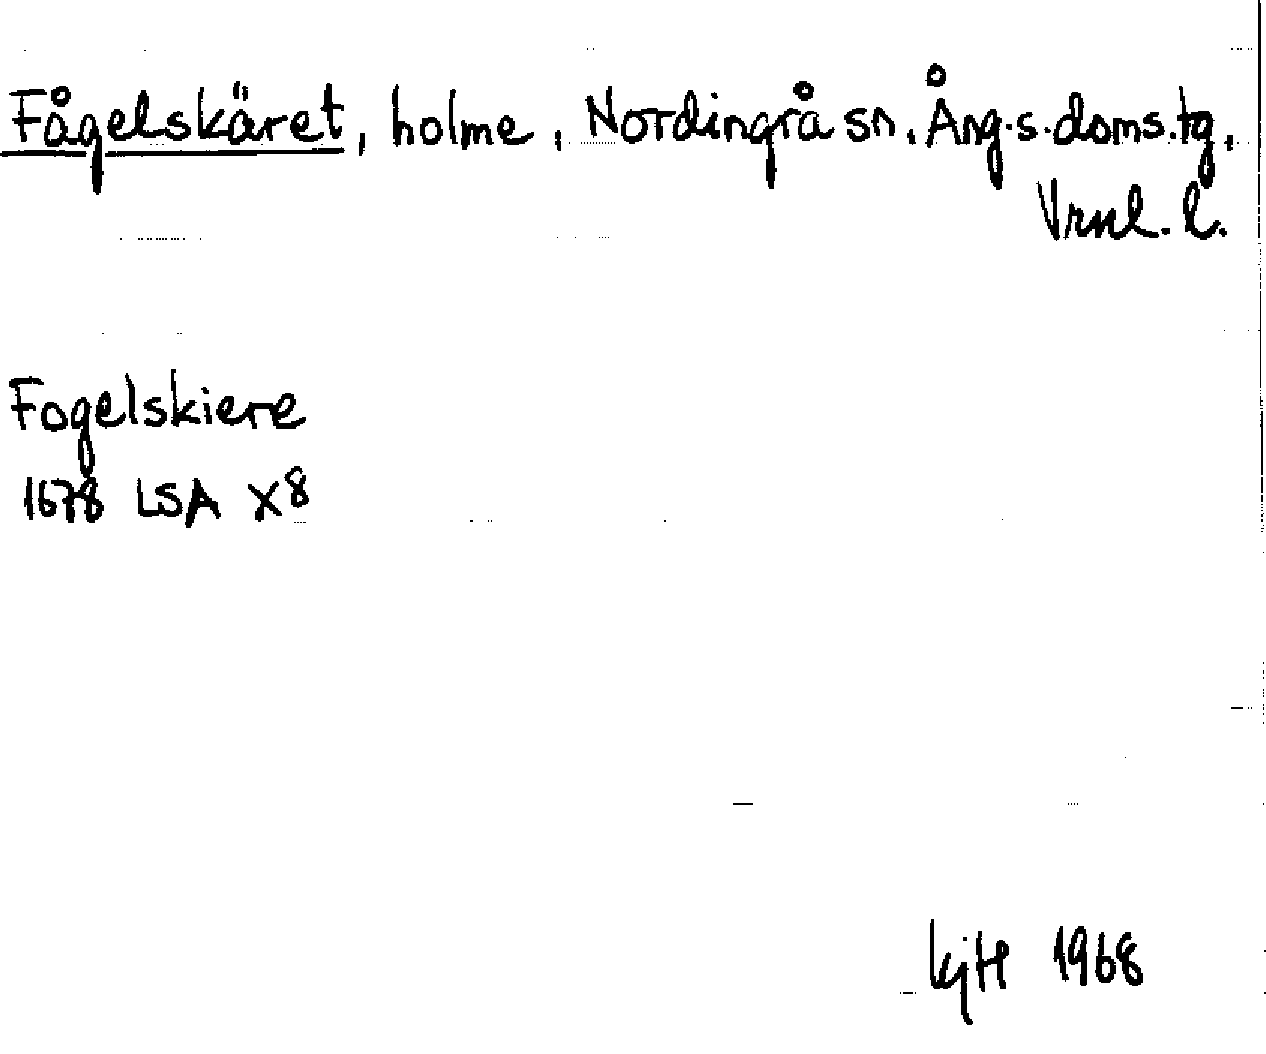 Fågelskäret, holme, Nordingrå sn. Ång.s.doms.tg,
Vrnl. l.
Fogelskiere
1678 LSA X8
kjH 1968